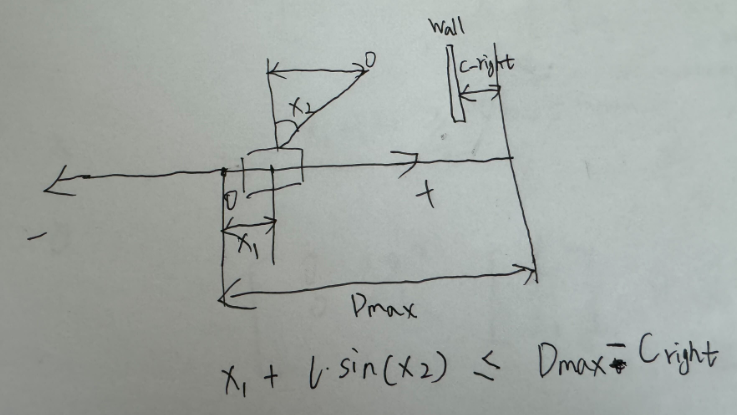 Wall
C-right
0
x2
+
0
x1
-
Dmax
x1 + l·sin(x2) ≤ Dmax - Cright